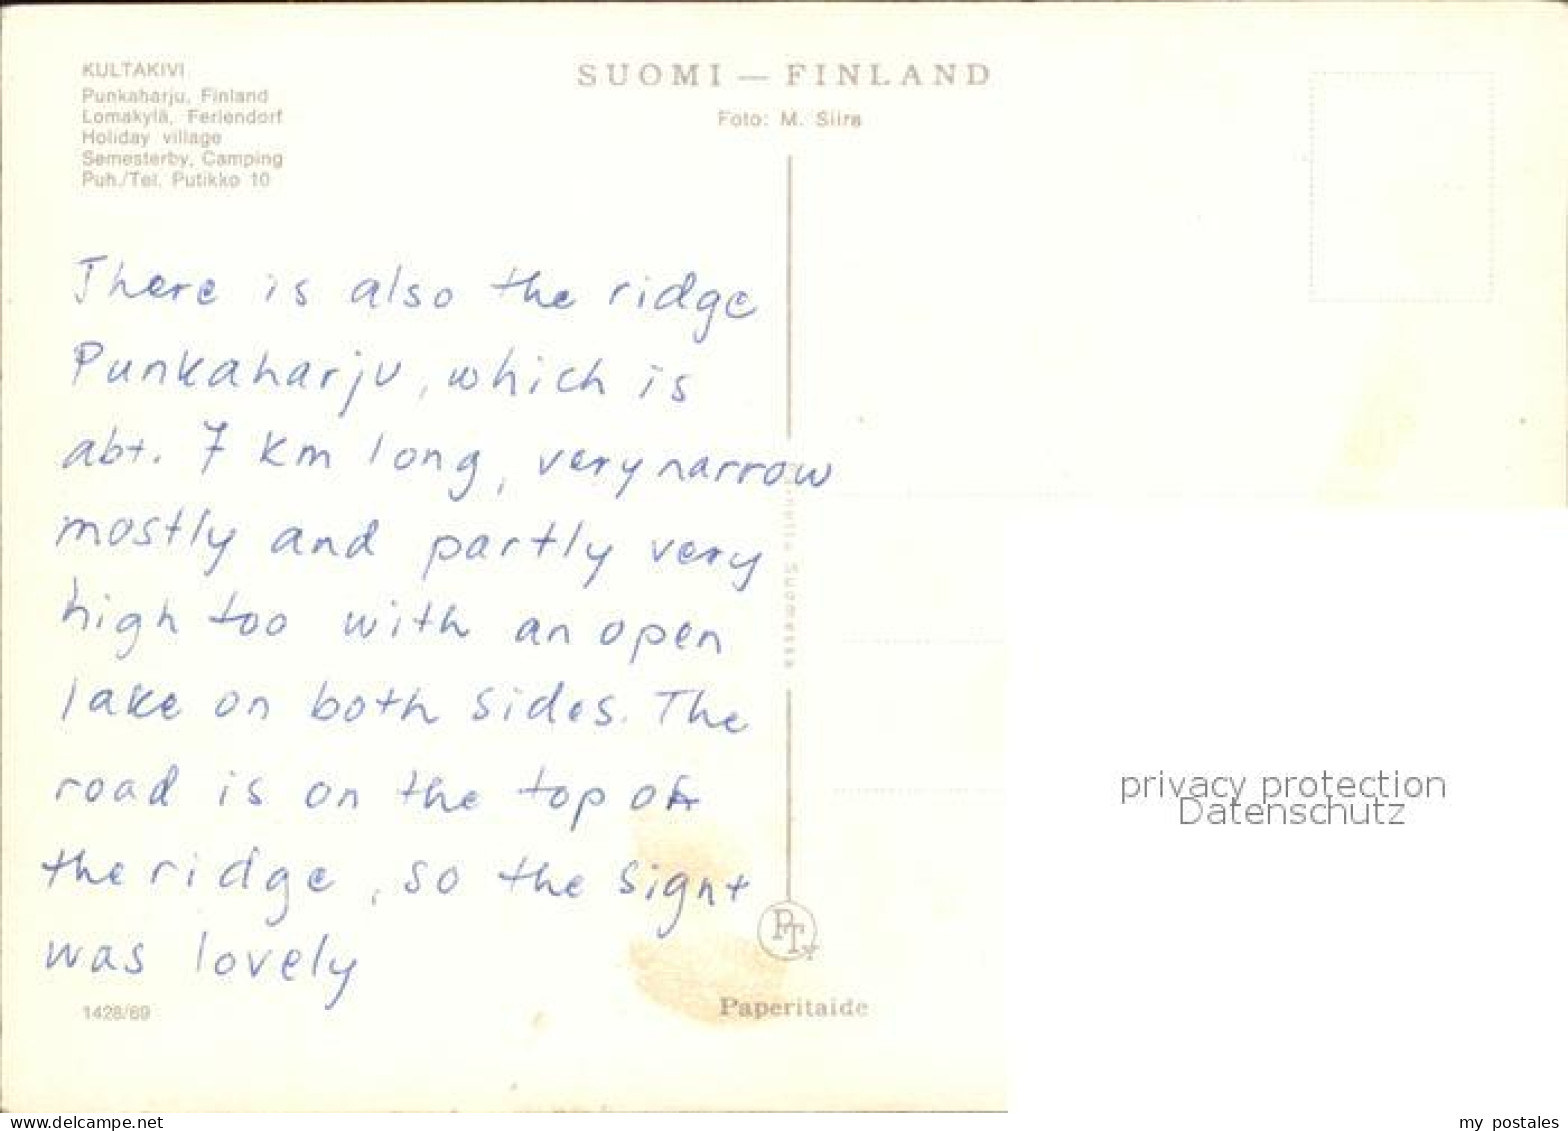 KULTAKIVI
Punkaharju, Finland
Lomakylä, Feriendorf
Holiday village
Semesterby, Camping
Puh./Tel. Putikko 10
SUOMI — FINLAND
Foto: M. Siira
There is also the ridge
Punkaharju, which is
abt. 7 km long, very narrow
mostly and partly very
high too with an open
lake on both sides. The
road is on the top of
the ridge, so the sight
was lovely
1428/69
Suomessa
PTy
Paperitaide
privacy protection
Datenschutz
www.delcampe.net
my_postales